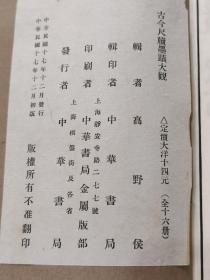 古今尺牘墨蹟大觀
△定價大洋十四元 (全十六冊)
輯者 高野侯
輯印者 中華書局
上海靜安寺路二七七號
印刷者 中華書局金屬版部
上海棋盤街及各省
發行者 中華書局
中華民國十七年十二月發行
中華民國十七年十二月初版
版權所有不准翻印